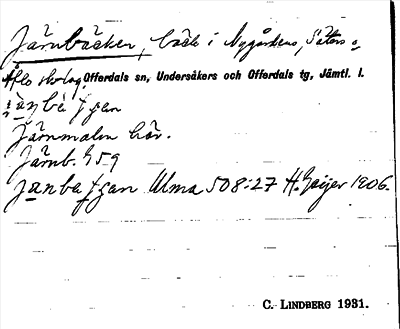 Järnbäcken, bäck i Nygårdens, Säters o
Aflo skolag, Offerdals sn, Undersåkers och Offerdals tg, Jämtl. l.
Järnmalm här.
Järnb. 959
Ulma 508:27 H. Geijer 1906.
C. LINDBERG 1931.